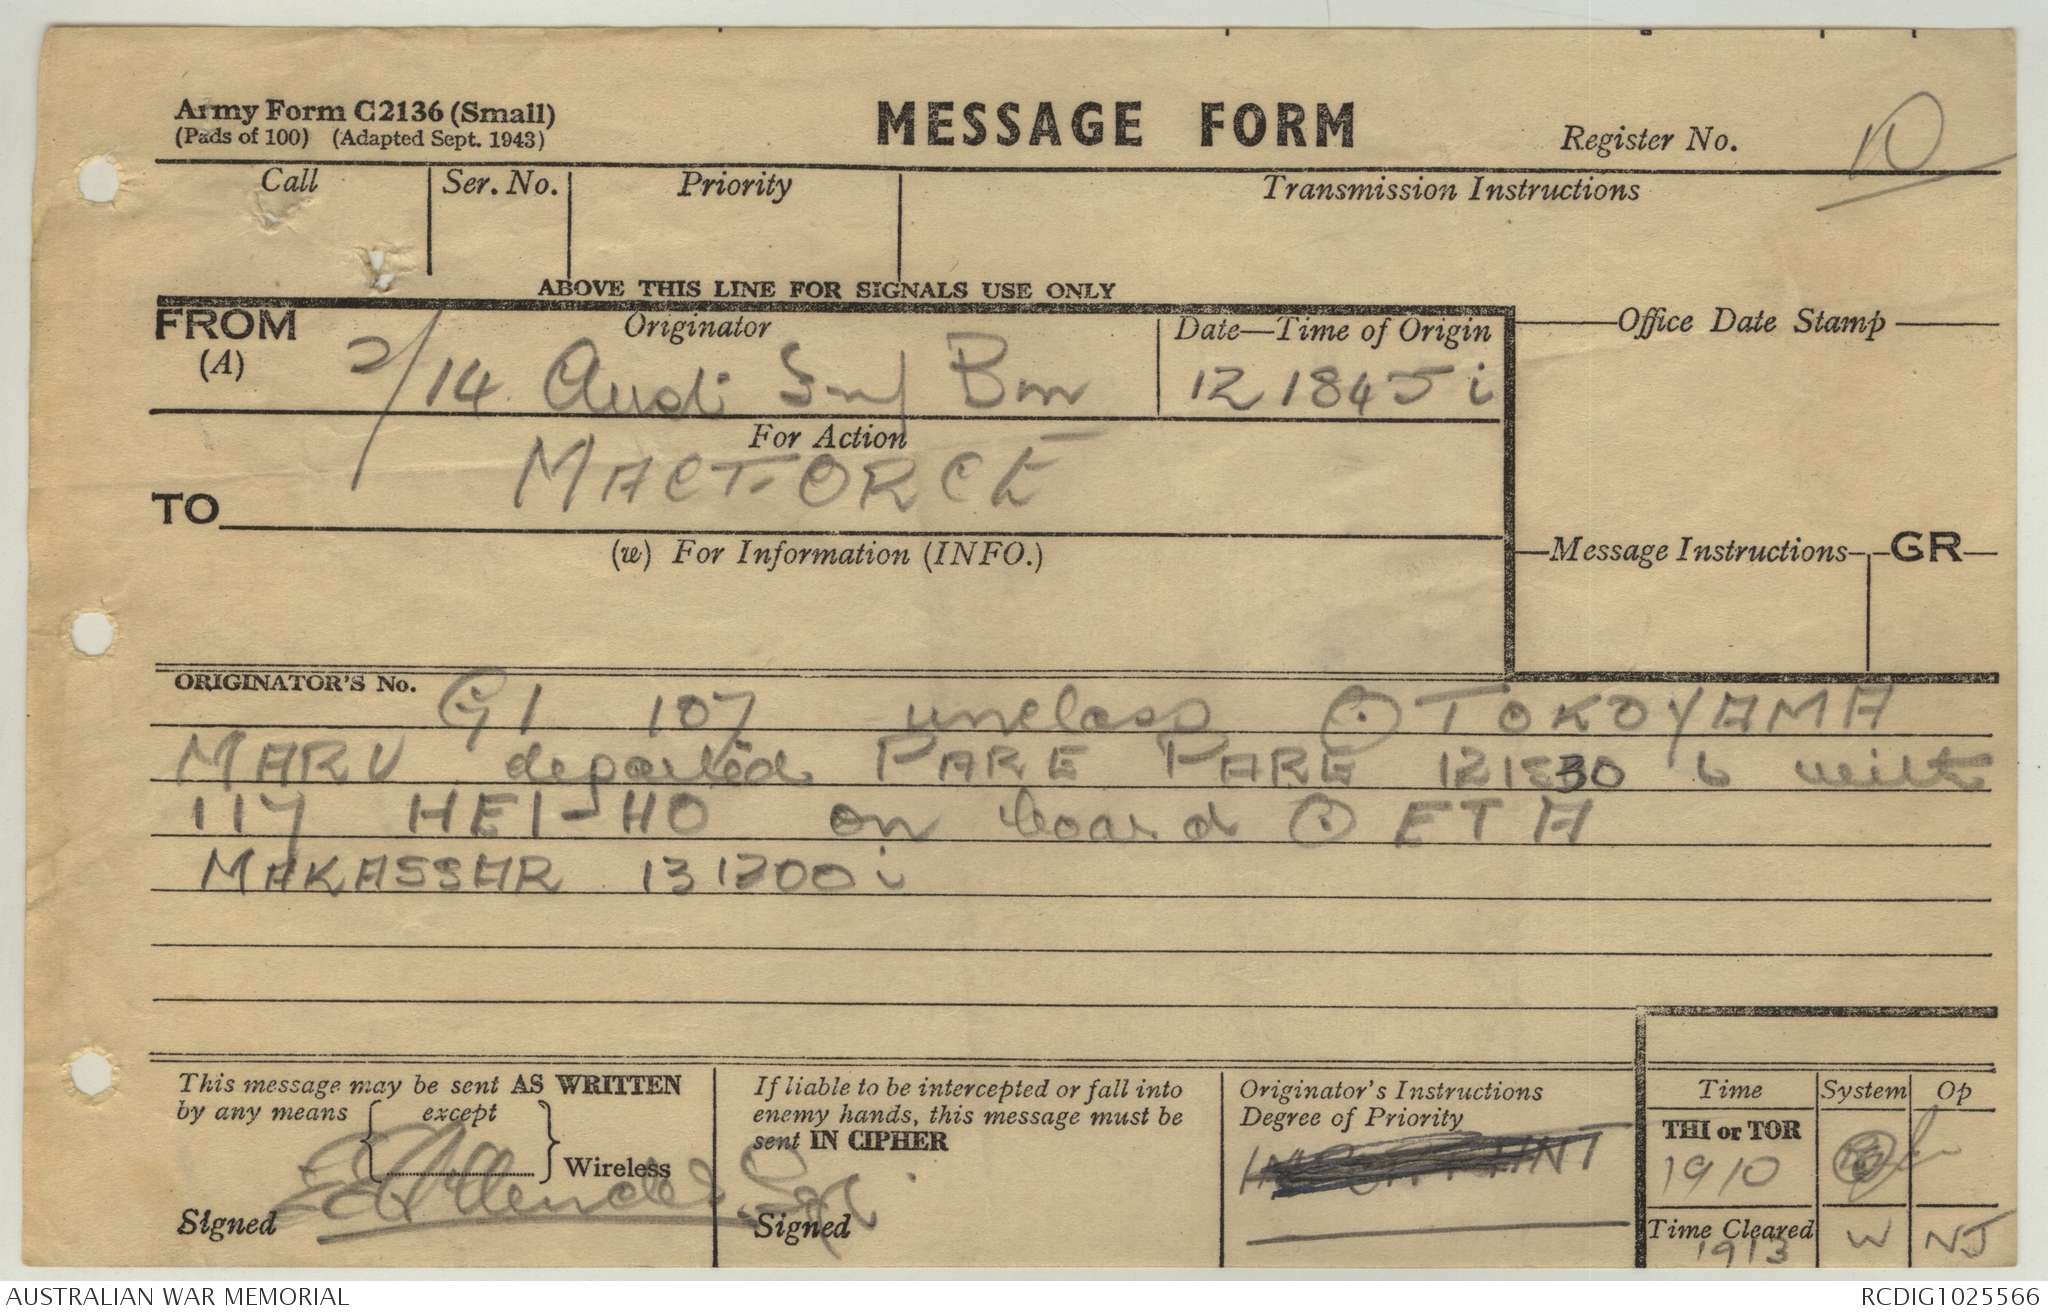 Army Form C2136 (Small)
(Pads of 100) (Adapted Sept. 1943)
MESSAGE FORM
Register No. 10
Call
Ser. No.
Priority
Transmission Instructions
ABOVE THIS LINE FOR SIGNALS USE ONLY
FROM
(A)
Originator
2/14 Aust Inf Bn
Date—Time of Origin
121845 i
Office Date Stamp
For Action
TO
MACFORCE
(w) For Information (INFO.)
Message Instructions
GR
ORIGINATOR'S No.
G1 107 unclass ⊙ TOKOYAMA
MARU departed PARE PARE with
117 HEI-HO on board ⊙ ETA
MAKASSAR 131200 i
This message may be sent AS WRITTEN
by any means except
Wireless
Signed
If liable to be intercepted or fall into
enemy hands, this message must be
sent IN CIPHER
Signed
Originator's Instructions
Degree of Priority
Time
System
Op
THI or TOR
1910
Time Cleared
1913
W
NJ
AUSTRALIAN WAR MEMORIAL
RCDIG1025566